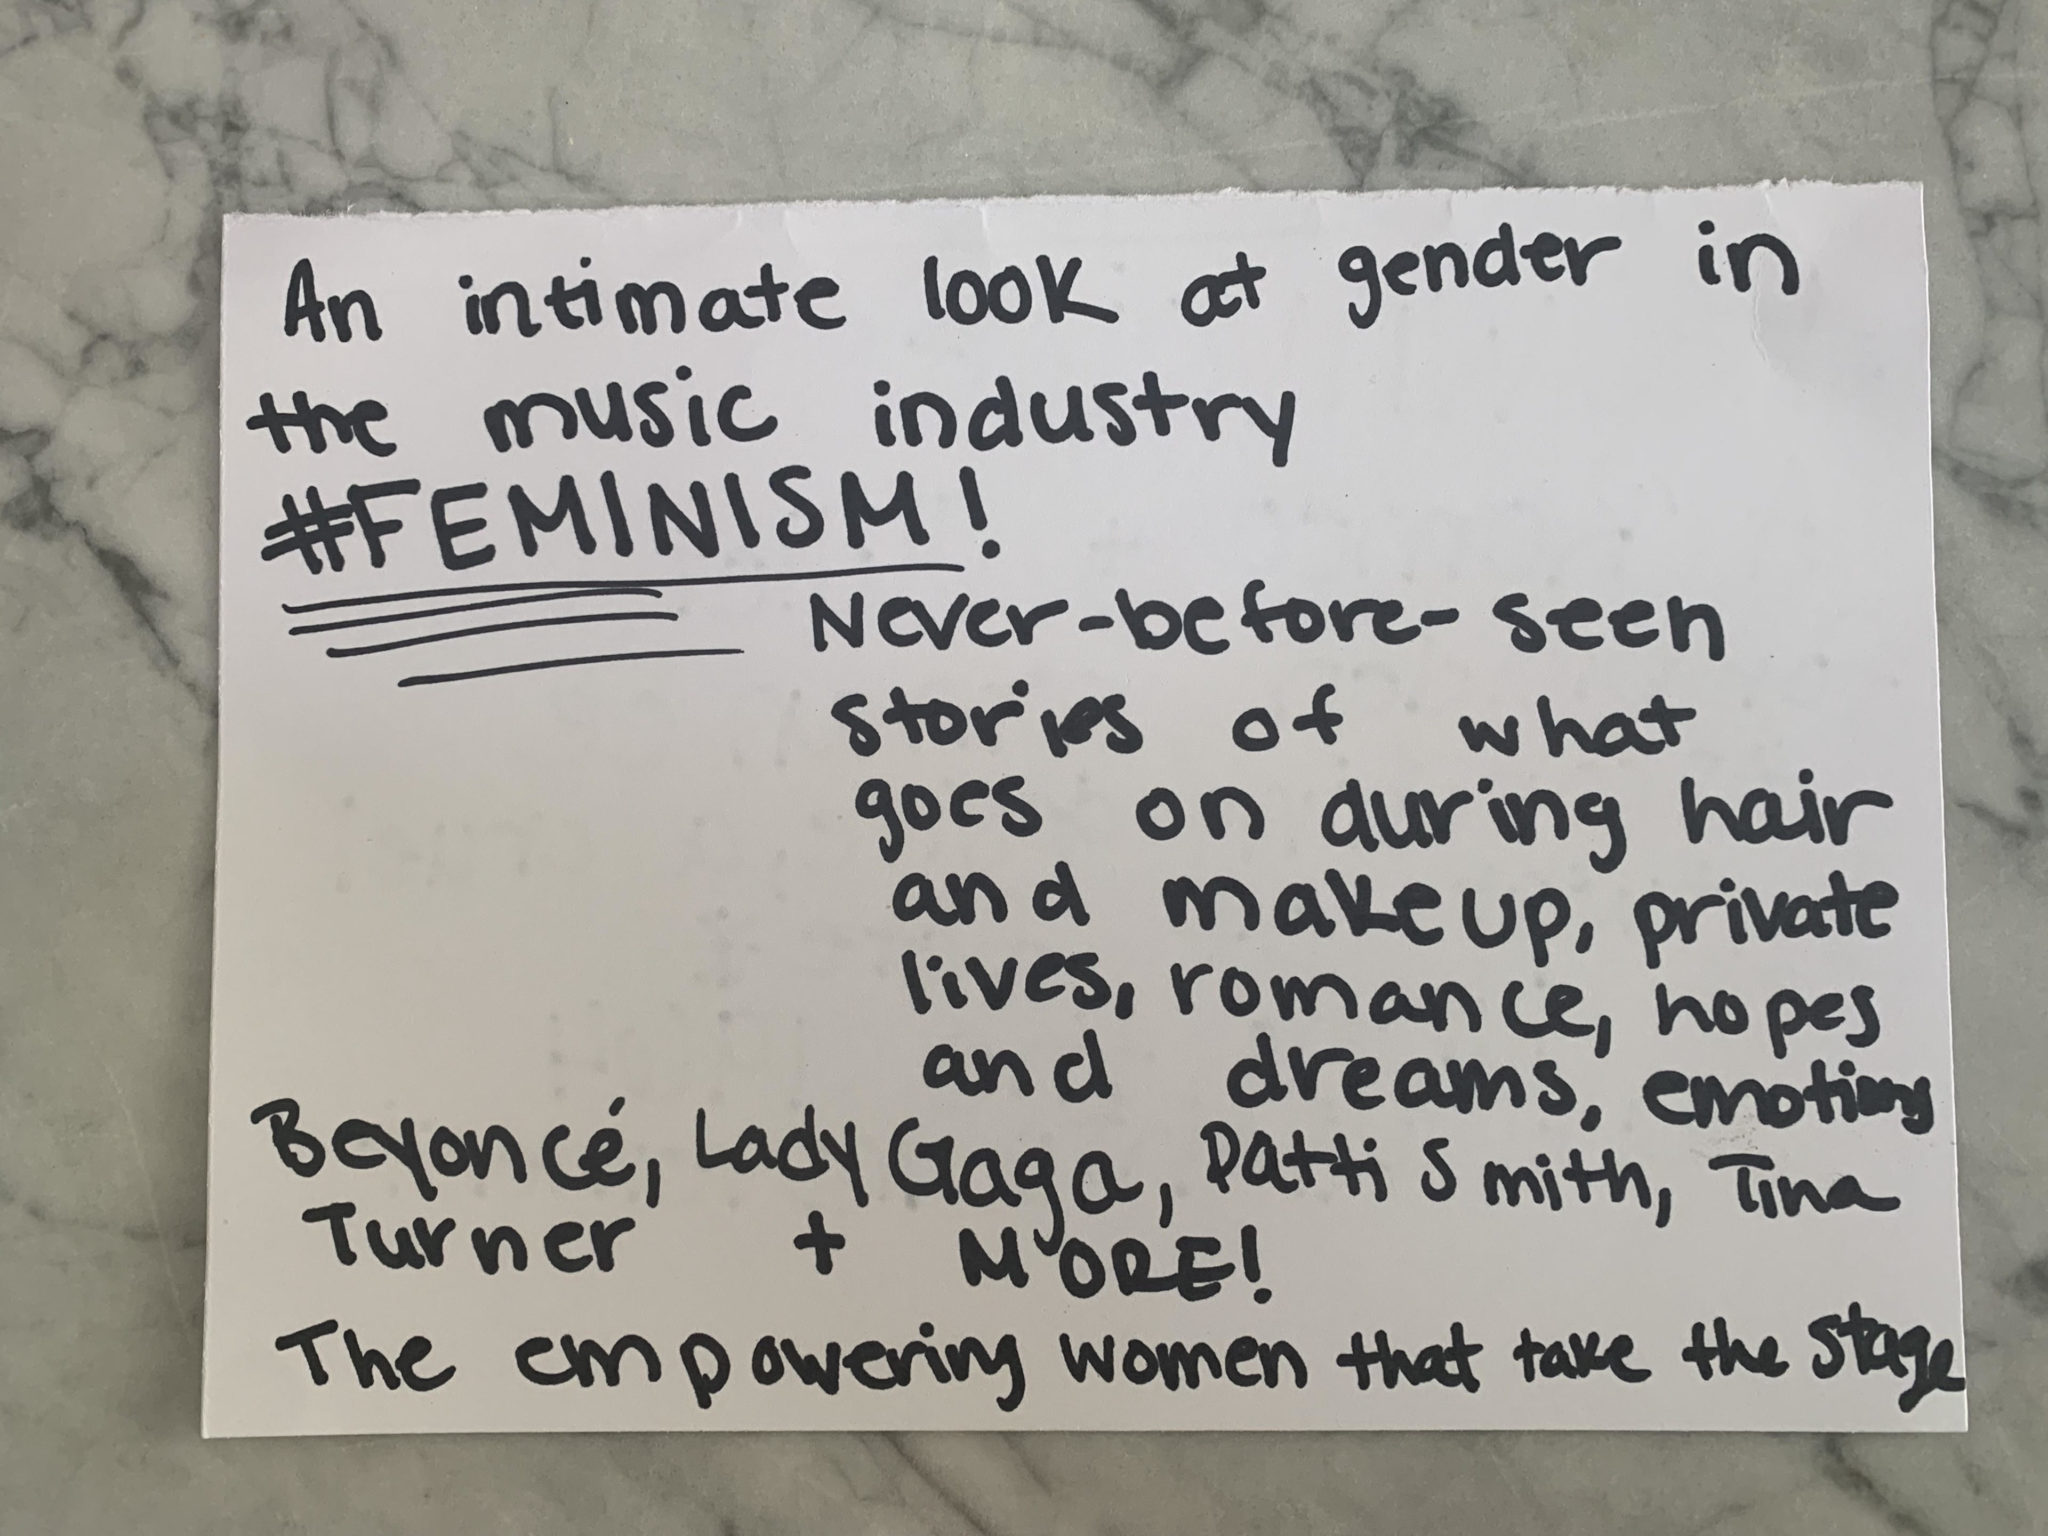 An intimate look at gender in
the music industry
#FEMINISM!
Never-before-seen
stories of what
goes on during hair
and makeup, private
lives, romance, hopes
and dreams, emotions
Beyoncé, Lady Gaga, Patti Smith, Tina
Turner + MORE!
The empowering women that take the stage